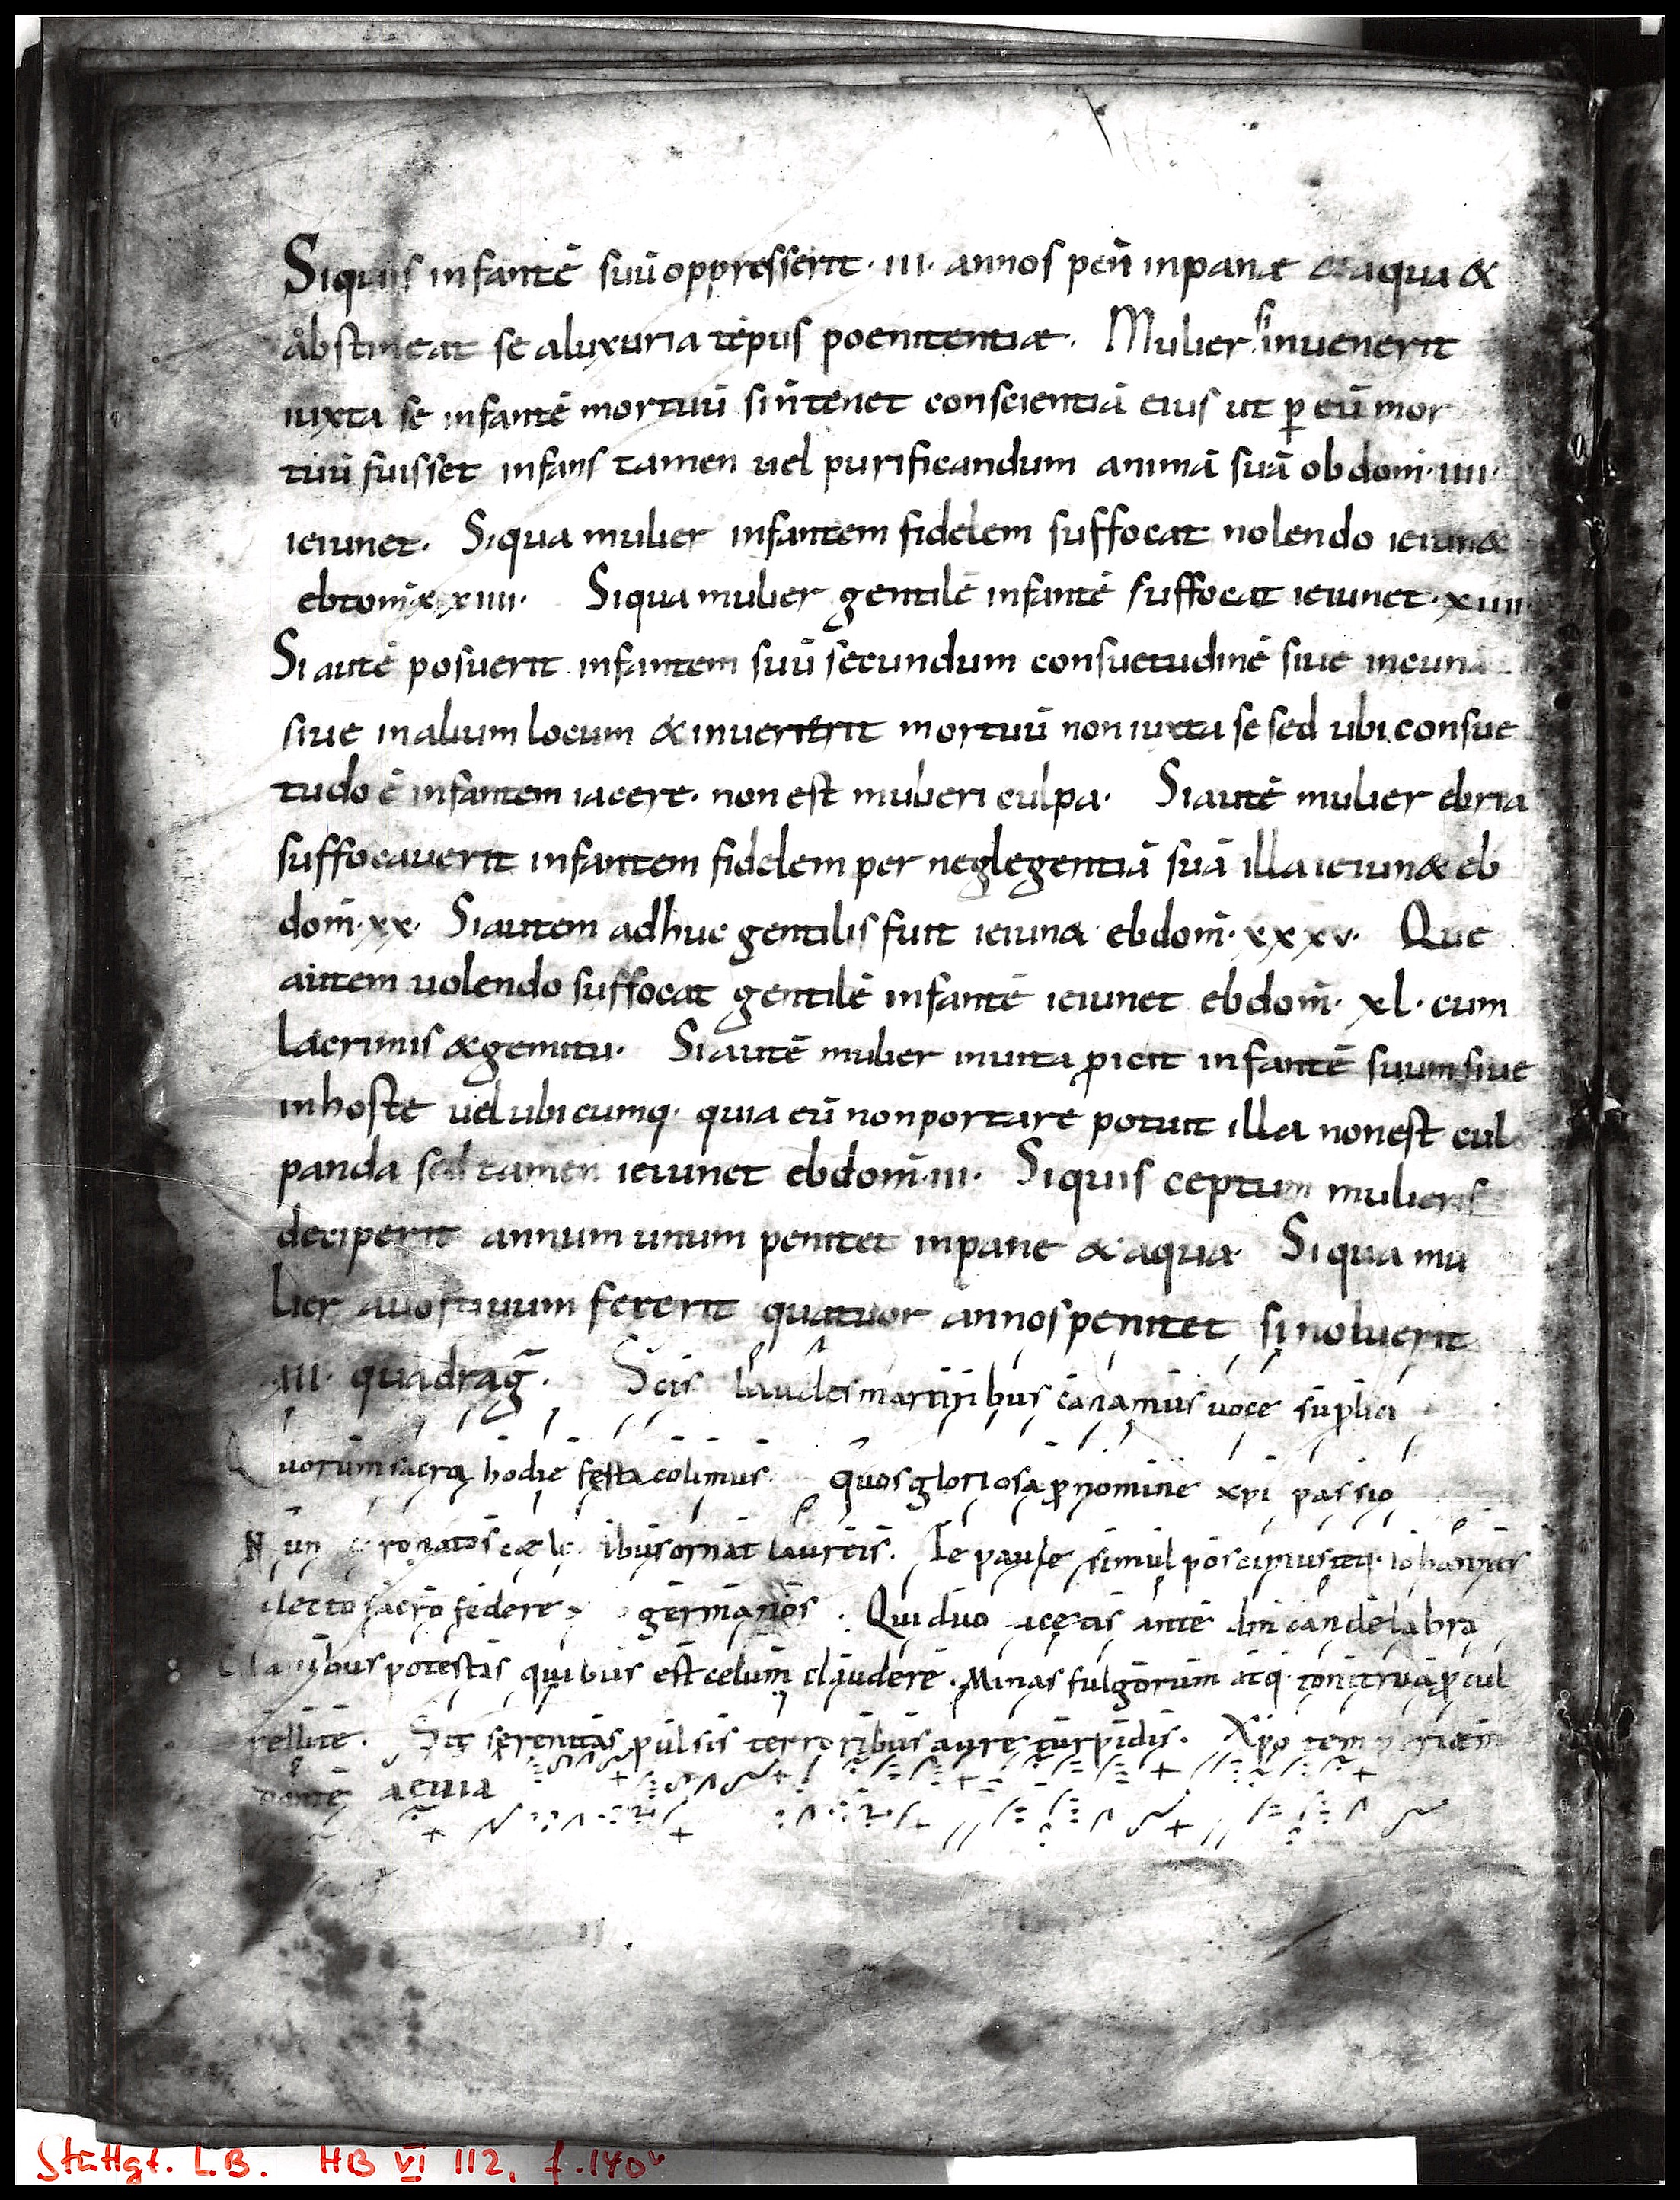 Siquis infantē suū oppresserit · III · annos peñ inpane & aqua &
abstineat se aluxuria tēpus poenitentiae. Mulier si inuenerit
iuxta se infantē mortuū si ñ tenet conscientiā eius ut ꝑ eū mor
tuū fuisset infans tamen uel purificandum animā suā ob dom̄ · IIII ·
ieiunet. Siqua mulier infantem fidelem suffocat nolendo ieiun&
ebtom̄ · xxIIII · Siqua mulier gentilē infantē suffocat ieiunet · xIIII
Si autē posuerit infantem suū secundum consuetudinē siue incuna
siue inalium locum & inuenerit mortuū non iuxta se sed ubi consue
tudo ē infantem iacere · non est mulieri culpa · Si autē mulier ebria
suffocauerit infantem fidelem per neglegentiā suā illa ieiun& eb
dom̄ · xx · Si autem adhuc gentilis fuit ieiuna ebdom̄ · xxxv · Que
autem uolendo suffocat gentilē infantē ieiunet ebdom̄ · xl · cum
lacrimis & gemitu · Si autē mulier inuita ꝓicit infantē suum siue
inhoste uel ubicumq · quia eū non portare potuit illa non est cul
panda sed tamen ieiunet ebdom̄ · III · Siquis ceptum mulieris
deciperit annum unum penitet inpane & aqua · Si qua mu
lier auortiuum fecerit quatuor annos penitet si noluerit
· III · quadraḡ · Scis laudes martiribus canamus uoce suplici
Quorum sacra hodie festa colimus quos gloriosa ꝓ nomine xpi passio
ornat laureis. Te paule simul poscimus teq · iohannes
sacro federe germanos. Qui duo ante dni candelabra
potestas quibus est celum claudere. Minas fulgorum atq · tonitrua ꝓcul
pellite. Sit serenitas pulsis terroribus aure turpidis. Xpo
aeuia
Stuttgt. L.B. HB VI 112, f.140v